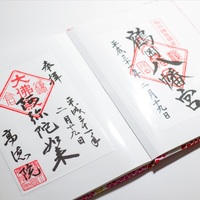 鶴岡八幡宮
平成三十一年
二月十九日
奉拝
平成三十一年
二月十九日
大佛
阿弥陀如来
高徳院